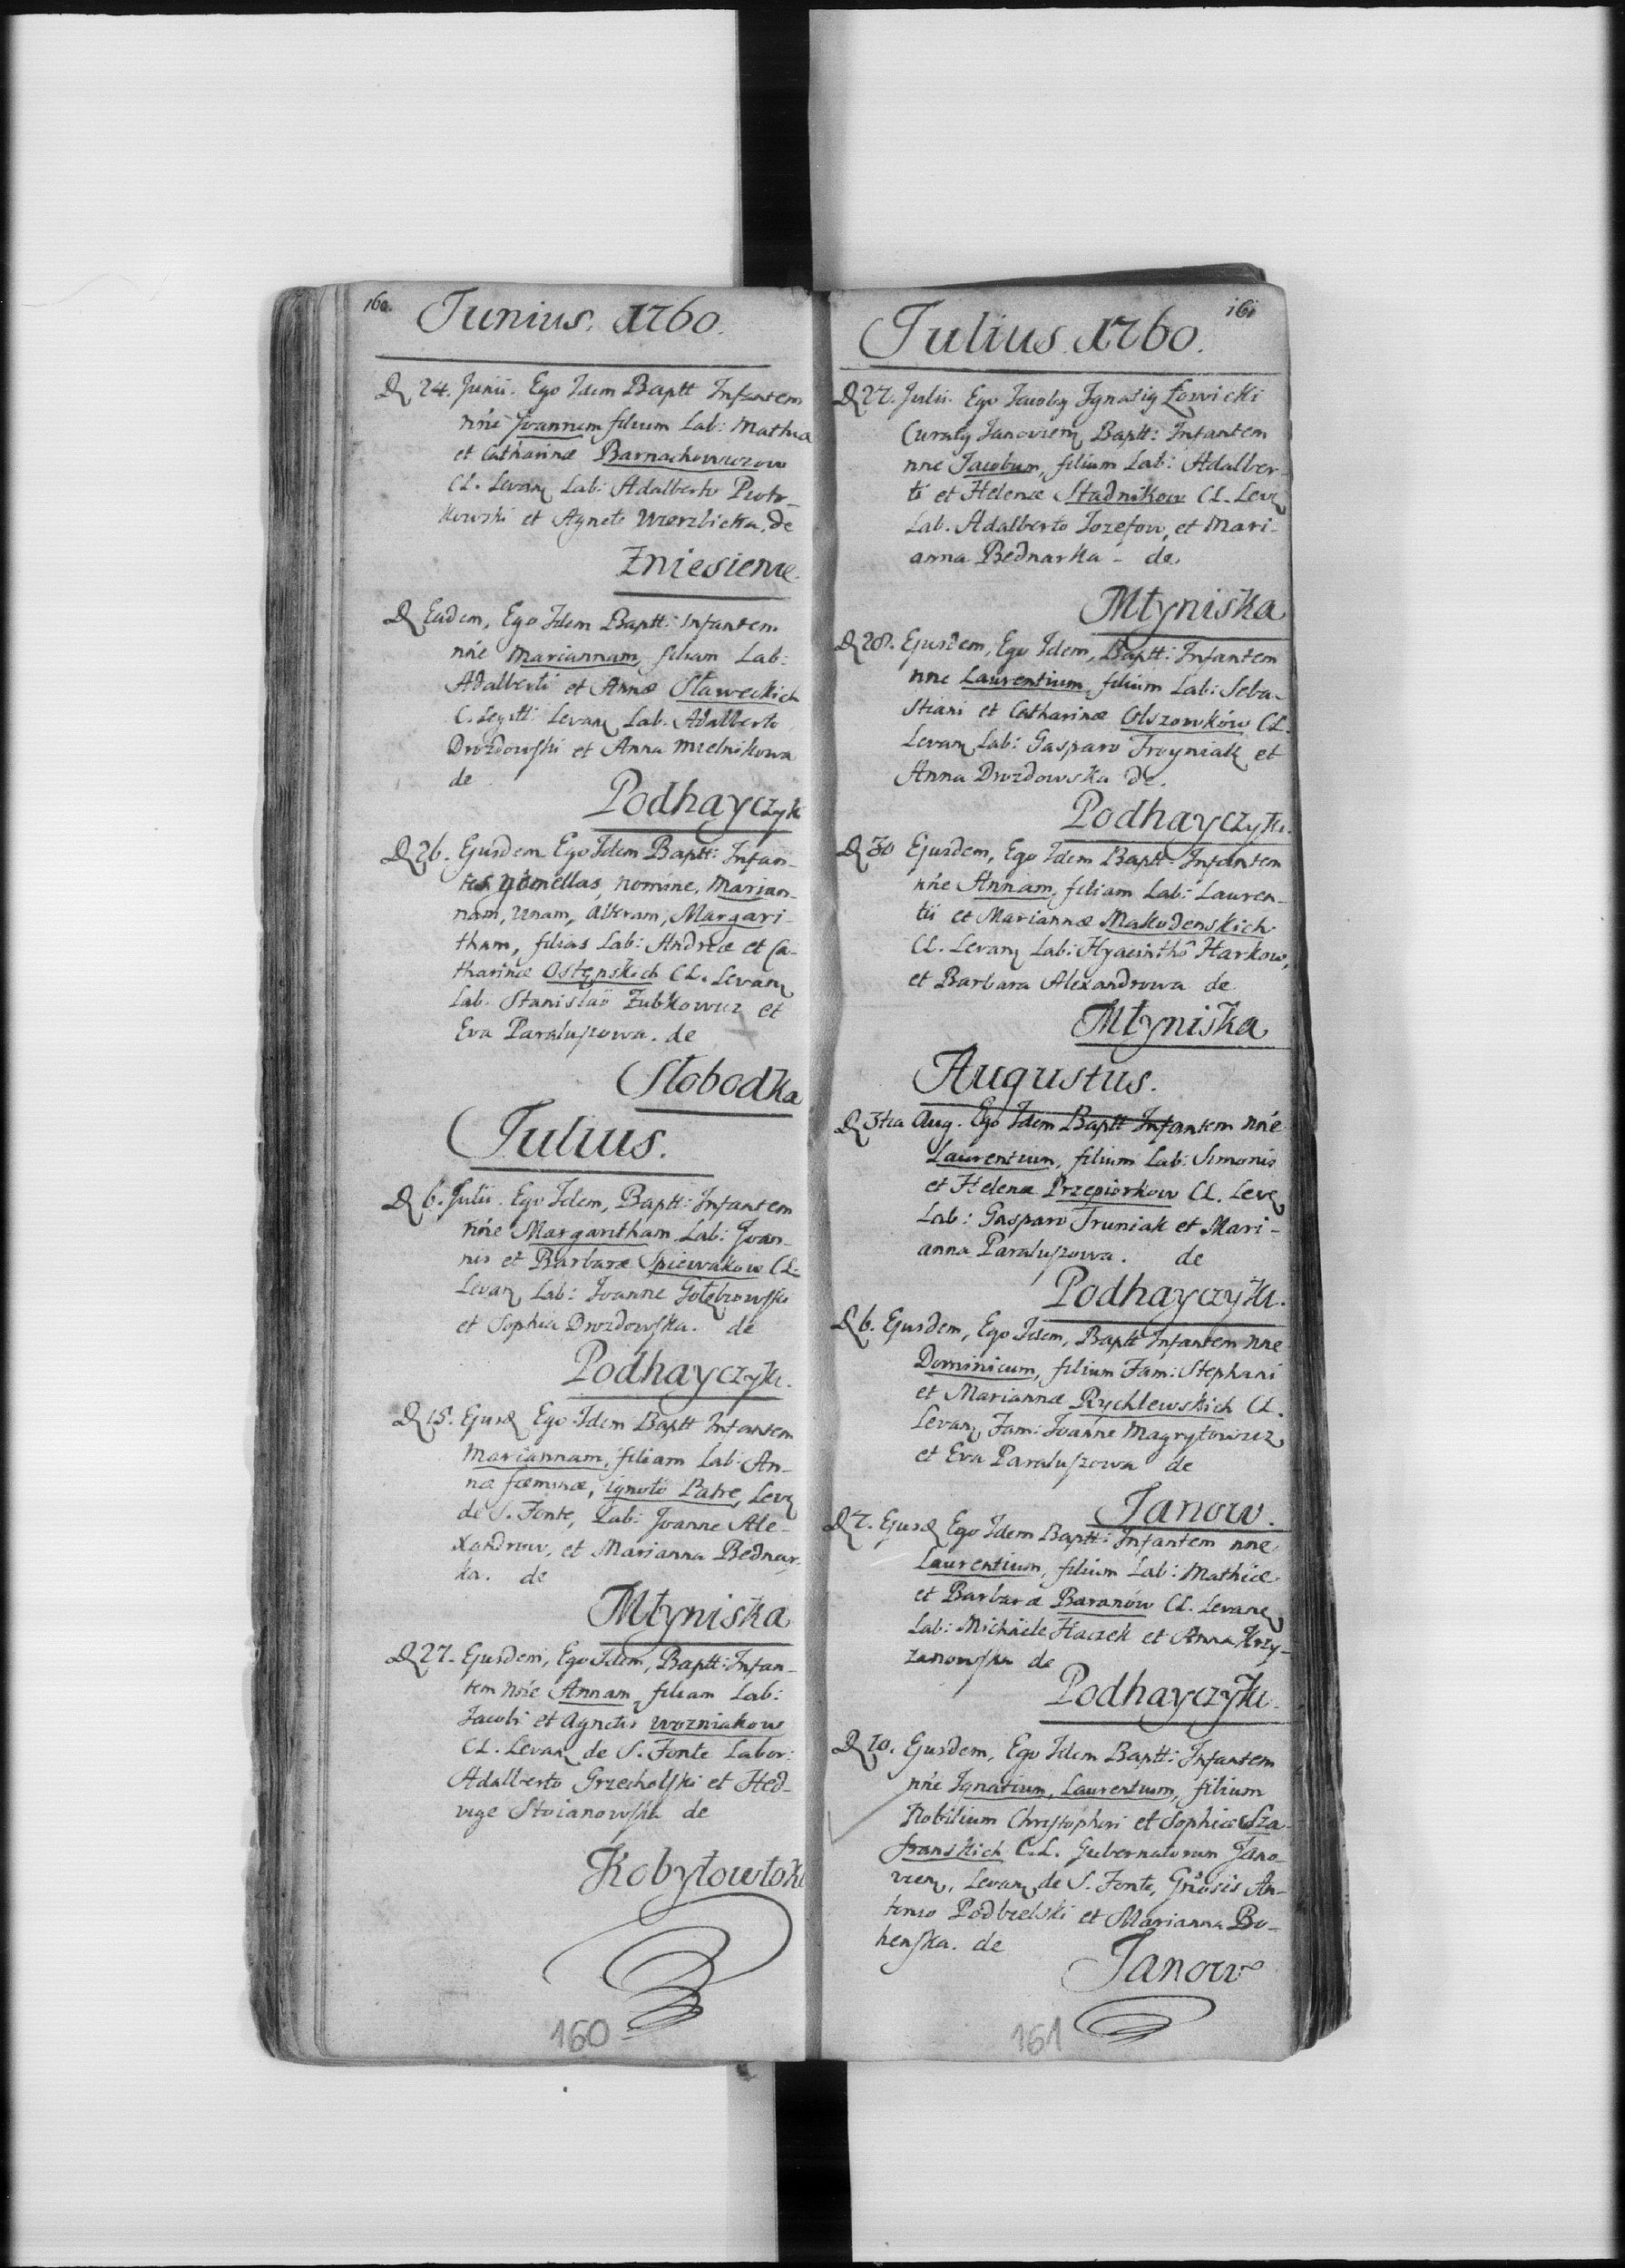 160.
Junius. 1760.
D 24. Junii. Ego Idem Baptt Infantem
nñe Joannem filium Lab: Mathiæ
et Catharinæ Barnachowiczow
CL. Levan Lab: Adalberto Piotr-
kowski et Agnete Wierzbicka. de
Zniesienie.
D Eadem, Ego Idem Baptt: Infantem
nñe Mariannam, filiam Lab:
Adalberti et Annæ Sławeckich
C. Legitt: Levan Lab. Adalberto
Drozdowski et Anna Mielnikowa
de
Podhayczyki
D 26. Ejusdem Ego Idem Baptt: Infan-
tes gemellas, nomine, Marian-
nam, Unam, alteram, Margari-
tham, filias Lab: Andreæ et Ca-
tharinæ Ostępskich CL. Levan
Lab. Stanislao Zubkowicz et
Eva Paraluszowa. de
Słobodka
Julius.
D 6. Julii. Ego Idem, Baptt: Infantem
nñe Margaritham Lab: Joan-
nis et Barbaræ Spiewakow CL.
Levan Lab: Joanne Gołębiowski
et Sophia Drozdowska. de
Podhayczyki.
D 15. Ejusd Ego Idem Baptt Infantem
Mariannam, filiam Lab: An-
næ fœminæ, ignoto Patre, Lev
de S. Fonte, Lab: Joanne Ale-
xandrow, et Marianna Bednar-
ka. de
Młyniska
D 27. Ejusdem, Ego Idem, Baptt: Infan-
tem nñe Annam, filiam Lab:
Jacobi et Agnetis Wozniakow
CL. Levan de S. Fonte Labor:
Adalberto Grzecholski et Hed-
vige Stoianowska de
Kobyłowłoki
160
161
Julius. 1760.
D 27. Julii. Ego Jacoby Ignatiy Łowicki
Curaty Janovien, Baptt: Infantem
nñe Jacobum, filium Lab: Adalber-
ti et Helenæ Stadnikow CL. Lev
Lab. Adalberto Jozefow, et Mari-
anna Bednarka - de.
Młyniska
D 28. Ejusdem, Ego Idem, Baptt: Infantem
nne Laurentium, filium Lab: Seba-
stiani et Catharinæ Olszowków CL.
Levan Lab: Gasparo Troyniak et
Anna Drozdowska de.
Podhayczyki.
D 30 Ejusdem, Ego Idem Baptt: Infantem
nñe Annam, filiam Lab: Lauren-
tii et Mariannæ Makodenskich
CL. Levan Lab: Hyacintho Harkow,
et Barbara Alexandrowa de
Młyniska
Augustus.
D 3tia Aug. Ego Idem Baptt Infantem nñe
Laurentium, filium Lab: Simonis
et Helenæ Przepiorkow CL. Lev
Lab: Gasparo Truniak et Mari-
anna Paraluszowa. de
Podhayczyki.
D 6. Ejusdem, Ego Idem, Baptt Infantem nne
Dominicum, filium Fam: Stephani
et Mariannæ Rychlewskich CL.
Levan, Fam: Joanne Magrytowicz
et Eva Paraluszowa de
Janow.
D 7. Ejusd Ego Idem Baptt: Infantem nne
Laurentium, filium Lab: Mathiæ
et Barbaræ Baranów CL. Levan
Lab: Michaele Haczek et Anna Krzy-
zanowska de
Podhayczyki.
D 10. Ejusdem, Ego Idem Baptt: Infantem
nñe Ignatium, Laurentium, filium
Nobilium Christophori et Sophiæ Sza-
franskich C.L. Gubernatorum Jano-
vien, Levan de S. Fonte, Gñosis An-
tonio Podbielski et Marianna Bo-
henska. de
Janow
161